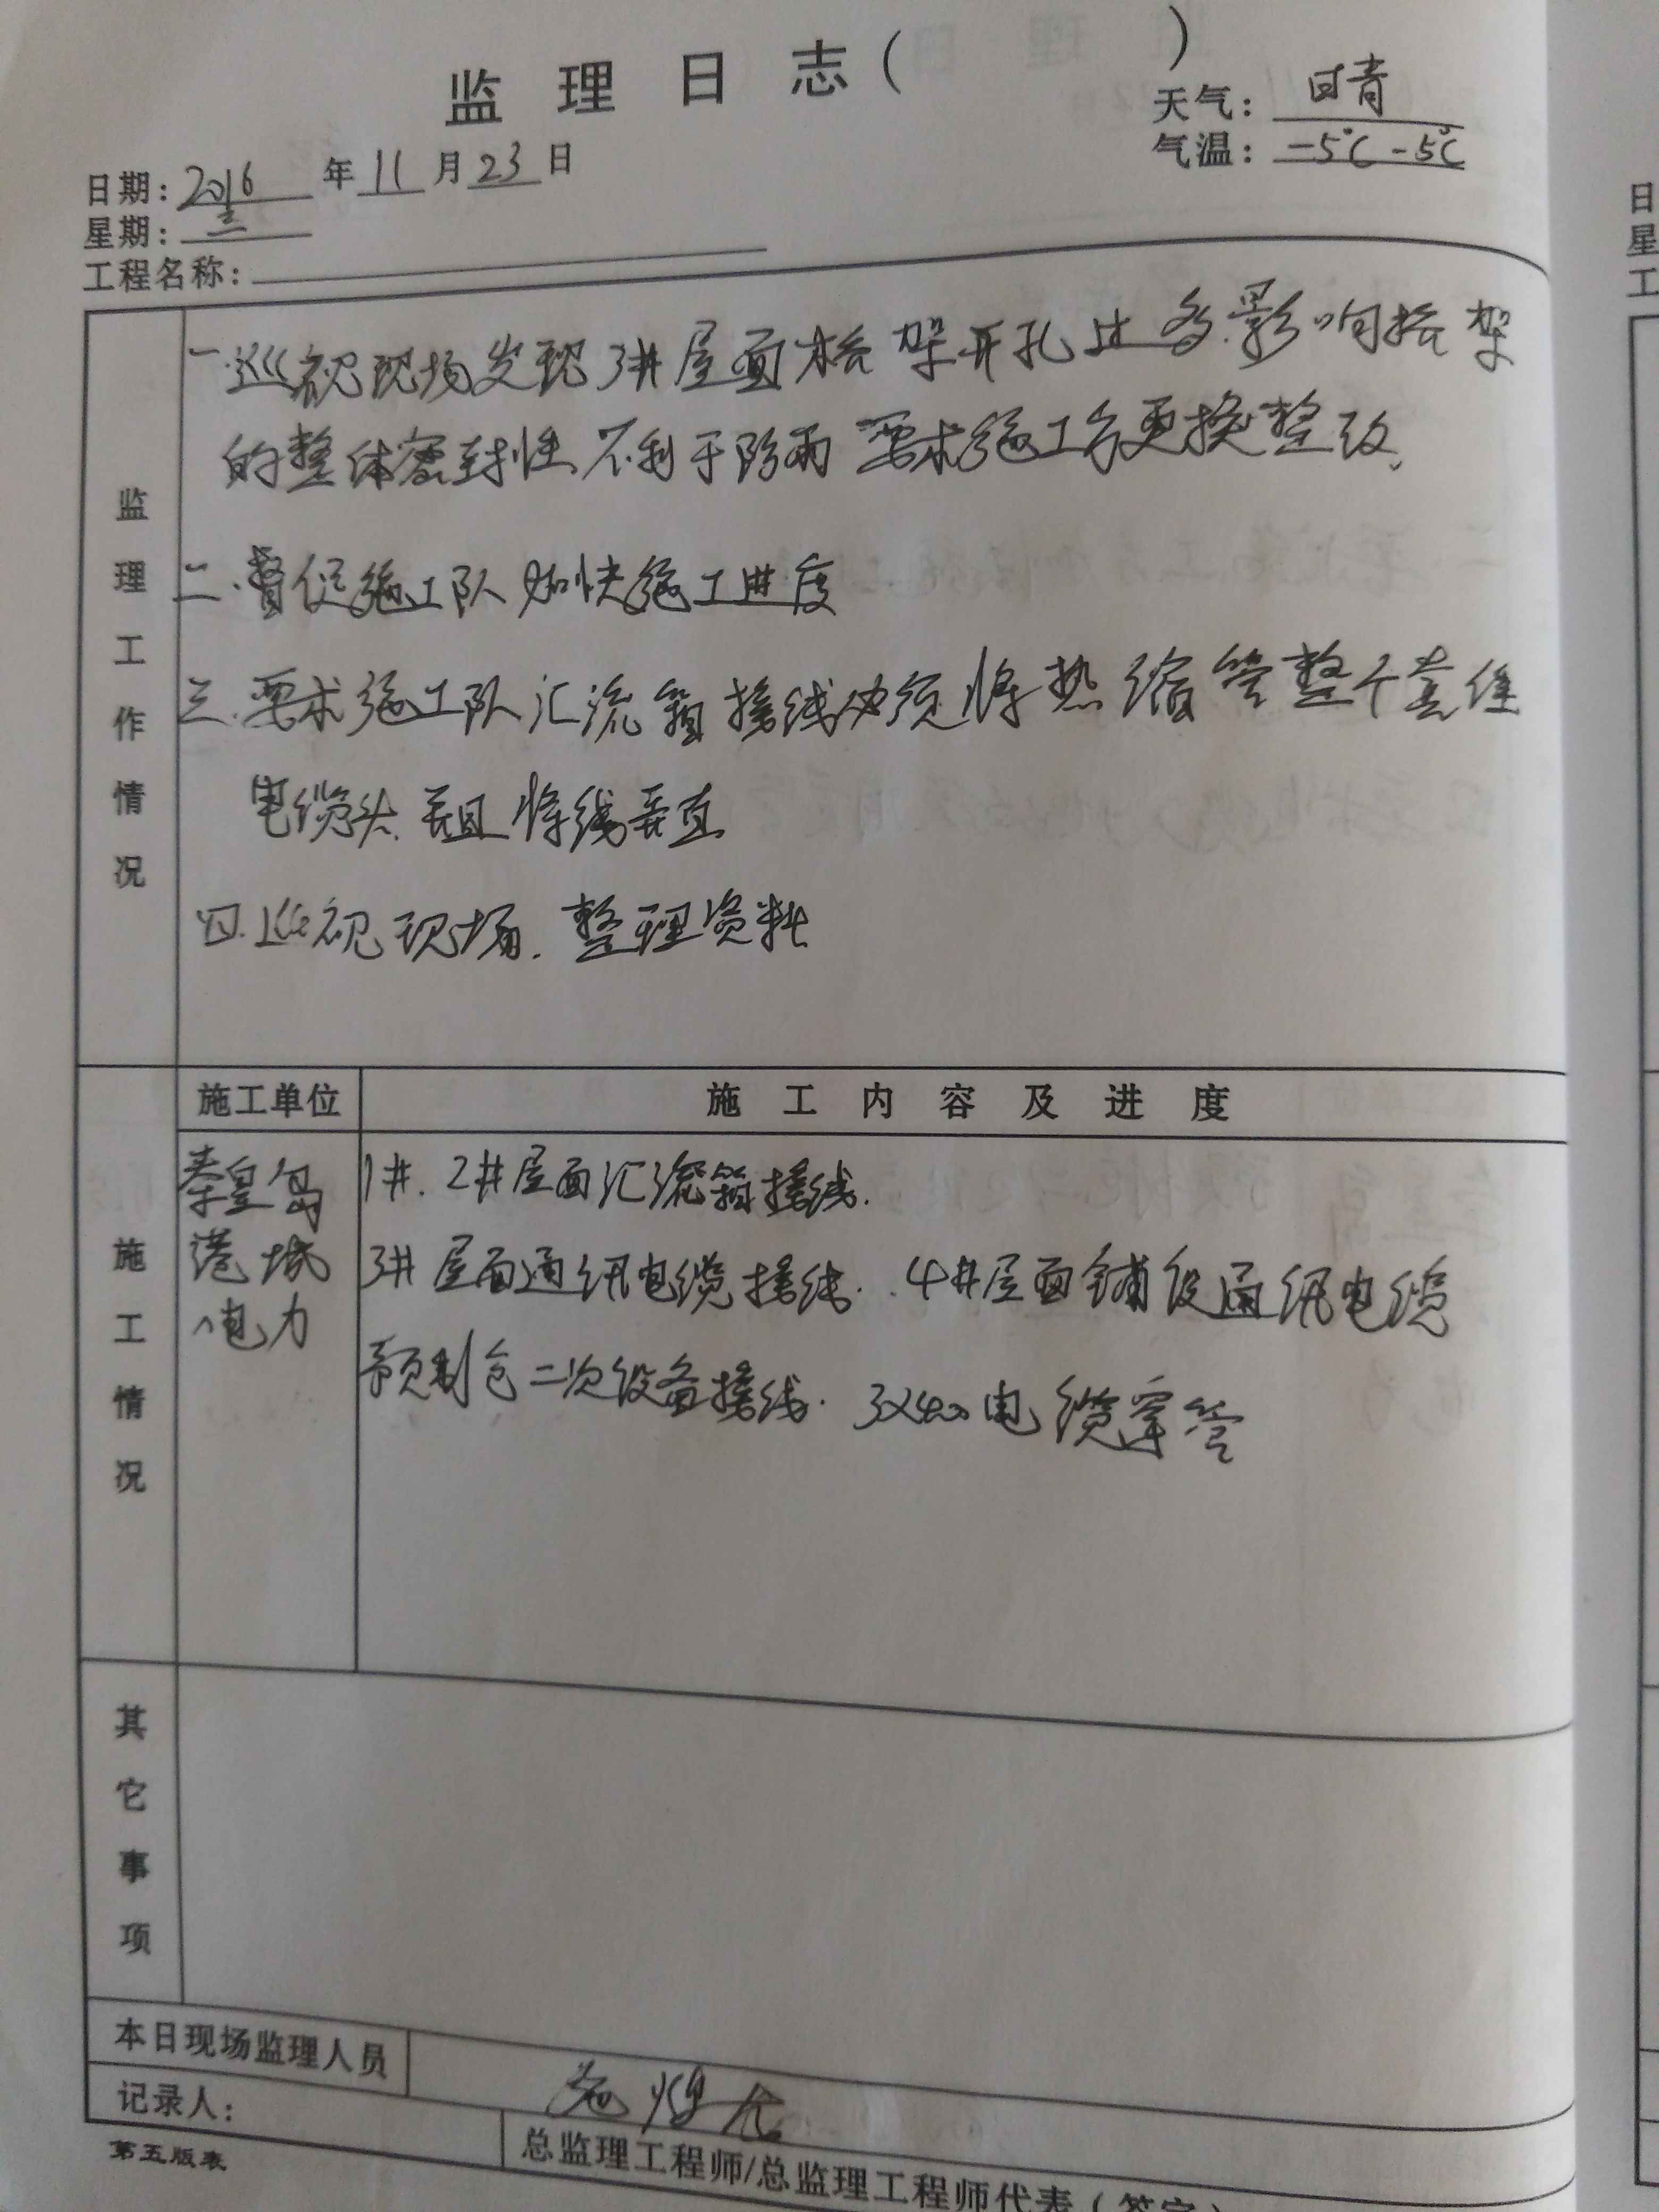 监理日志( )
天气: 晴
气温: -5℃-5℃
日期: 2016年11月23日
星期: 三
工程名称:
监理工作情况
一.巡视现场发现3#屋面桥架开孔过多.影响桥架
的整体密封性、不利于防雨 要求施工方更换整改、
二.督促施工队加快施工进度
三.要求施工队汇流箱接线必须将热缩管整个套住
电缆头.并且将线弄直
四.巡视现场.整理资料
施工情况
施工单位 施工内容及进度
秦皇岛
港城
电力
1#.2#屋面汇流箱接线.
3#屋面通讯电缆接线..4#屋面铺设通讯电缆
预制仓二次设备接线.3×400电缆穿管
其它事项
本日现场监理人员
记录人:
总监理工程师/总监理工程师代表(签字)
第五版表
日
星
工